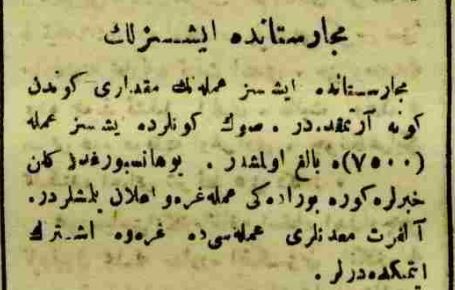 مجارستانده ایشسزلك
مجارستانده ایشسز عمله‌نك مقداری كوندن
كونه آرتمقده‌در . صوك كونلرده یشسز عمله
(٧٥٠٠)ه بالغ اولمشدر . یوهانسبورغدن كلن
خبرلره كوره بوراده‌كی عمله غره‌و اعلان یلمشلردر.
آلفرت معدنلری عمله‌سی‌ده غره‌وه اشترك
ایتمكده‌درلر .